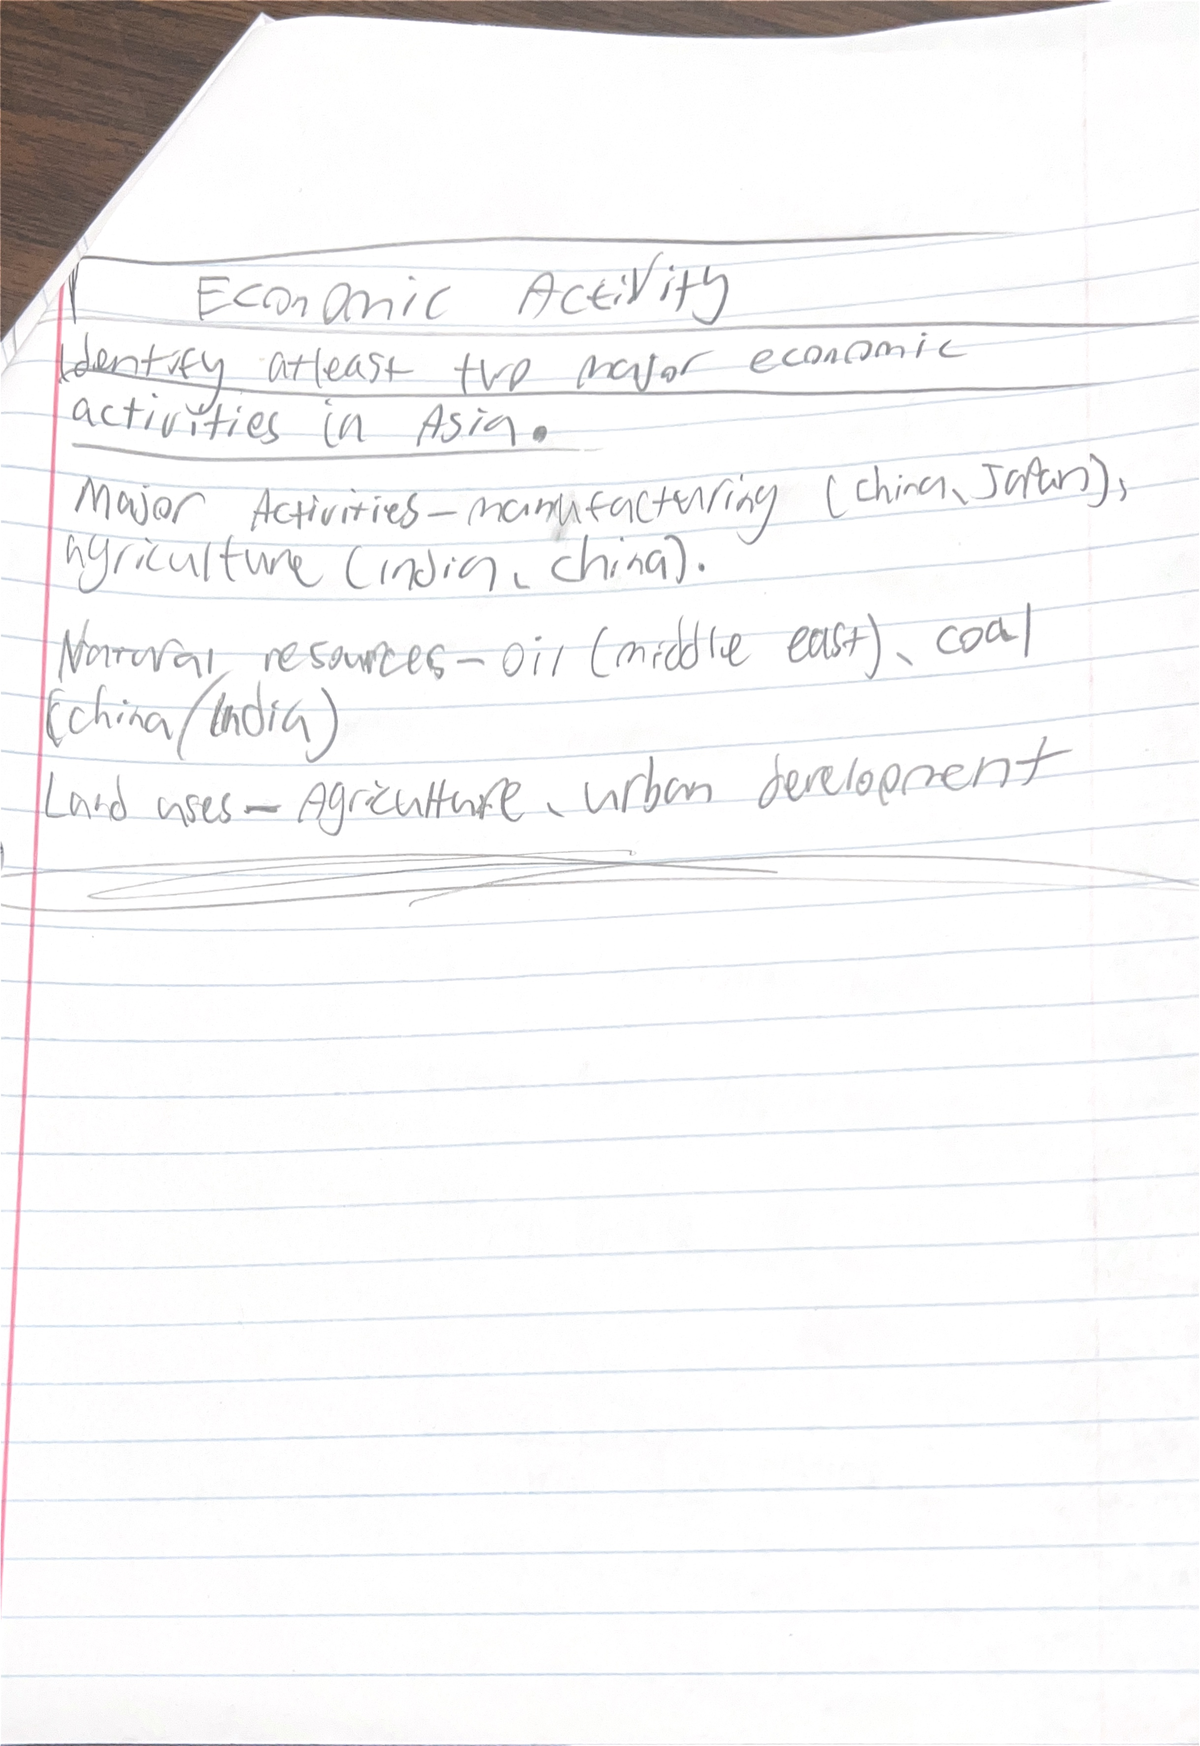 Economic Activity
Identify atleast two major economic
activities in Asia.
Major Activities - manufacturing (china, Japan),
agriculture (india, china).
Natural resources - oil (middle east), coal
(china/India)
Land uses - Agriculture, urban development